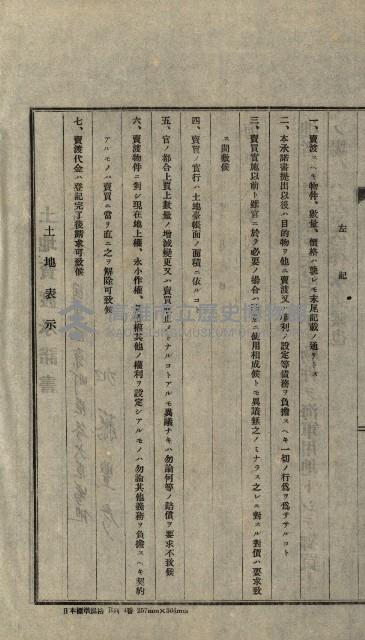 左記
一、賣渡スヘキ物件、數量、價格ハ總レモ末尾記載ノ通リトス
二、本承諾書提出以後ハ目的物ヲ他ニ賣渡又ハ權利ノ設定等債務ヲ負擔スヘキ一切ノ行爲ヲ爲サザルコト
三、賣買實施以前ト雖官ニ於テ必要ノ場合ハ ニ使用相成候トモ異議無之ノミナラス之レニ對スル對價ハ要求致
ス間敷候
四、賣買ノ實行ハ土地臺帳面ノ面積ニ依ルコト
五、官ノ都合上買上數量ノ增減變更又ハ賣買 止ノトナルコトアルモ異議ナキハ勿論何等ノ賠償ヲ要求不致候
六、賣渡物件ニ對シ現在地上權、永小作權、 權其他ノ權利ヲ設定シアルモノハ勿論其他義務ヲ負擔スヘキ契約
アルモノハ賣買ニ當リ直ニ之ヲ解除可致候
七、賣渡代金ハ登記完了後請求可致候
土地表示
高雄市立歷史博物館
KAOHSIUNG MUSEUM OF HISTORY
日本標準規格 B列4番 257mm×364mm